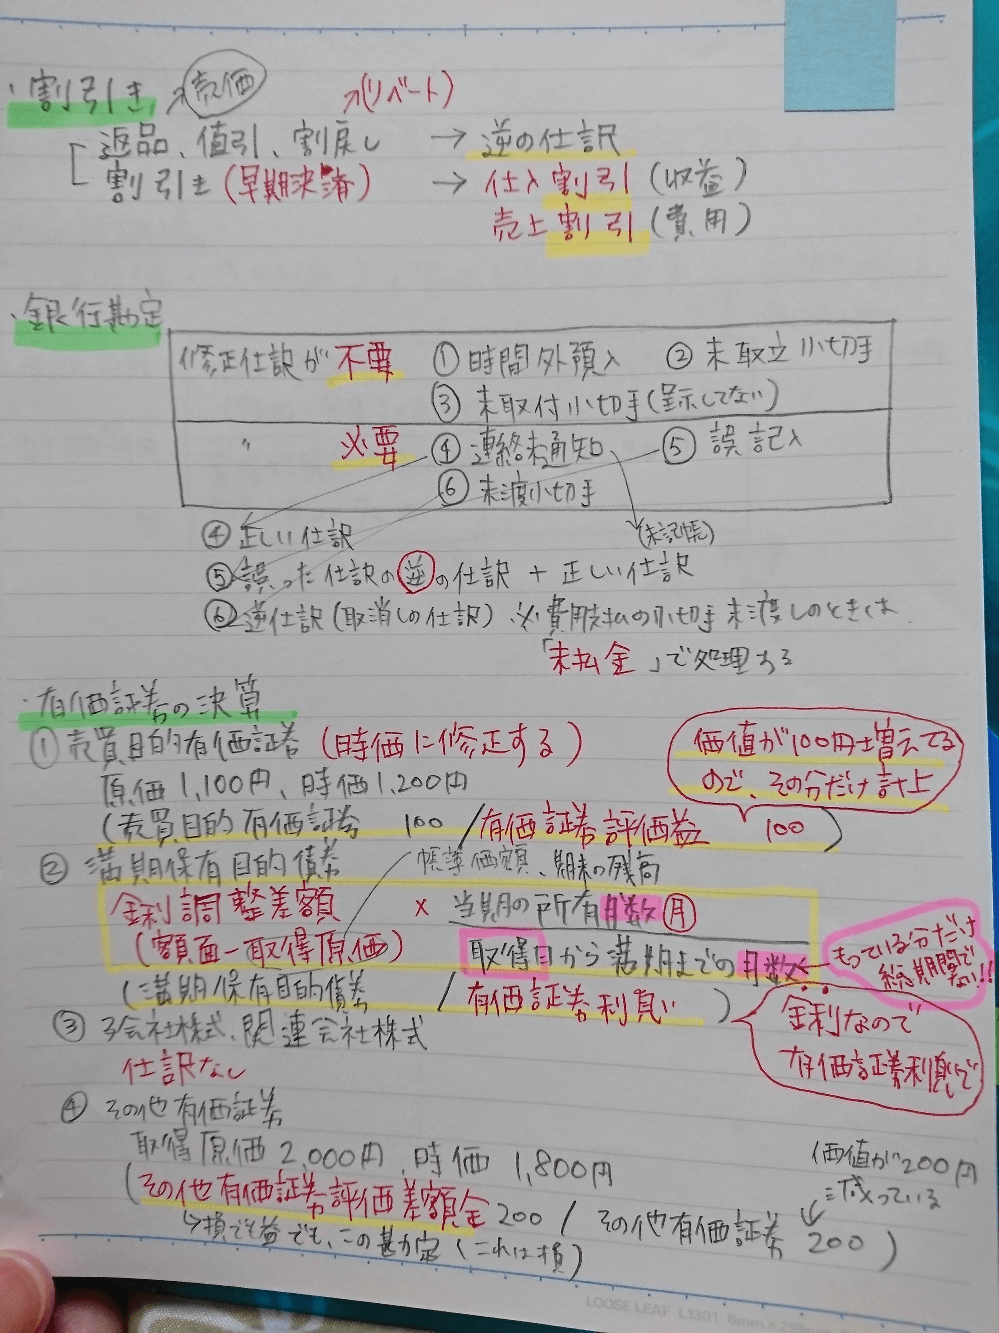 ・割引き ↗売価 ↗(リベート)
返品、値引、割戻し → 逆の仕訳
割引き(早期決済) → 仕入割引(収益)
売上割引(費用)
・銀行勘定
修正仕訳が不要 ①時間外預入 ②未取立小切手
③未取付小切手(呈示してない)
〃 必要 ④連絡未通知 ⑤誤記入
⑥未渡小切手
④正しい仕訳 (未記帳)
⑤誤った仕訳の逆の仕訳 + 正しい仕訳
⑥逆仕訳(取消しの仕訳) ※費用支払の小切手未渡しのときは
「未払金」で処理する
・有価証券の決算
①売買目的有価証券(時価に修正する)
価値が100円増えてる
ので、その分だけ計上
原価1,100円、時価1,200円
(売買目的有価証券 100 / 有価証券評価益 100)
②満期保有目的債券 帳簿価額、期末の残高
金利調整差額 × 当期の所有月数 月
(額面−取得原価) 取得日から満期までの月数
もっている分だけ
総期間で
ない!!
(満期保有目的債券 / 有価証券利息)
金利なので
有価証券利息で
③子会社株式、関連会社株式
仕訳なし
④その他有価証券
取得原価2,000円、時価1,800円
価値が200円
減っている
(その他有価証券評価差額金 200 / その他有価証券 200)
↳損でも益でも、この勘定(これは損)
LOOSE LEAF L1301 6mm×